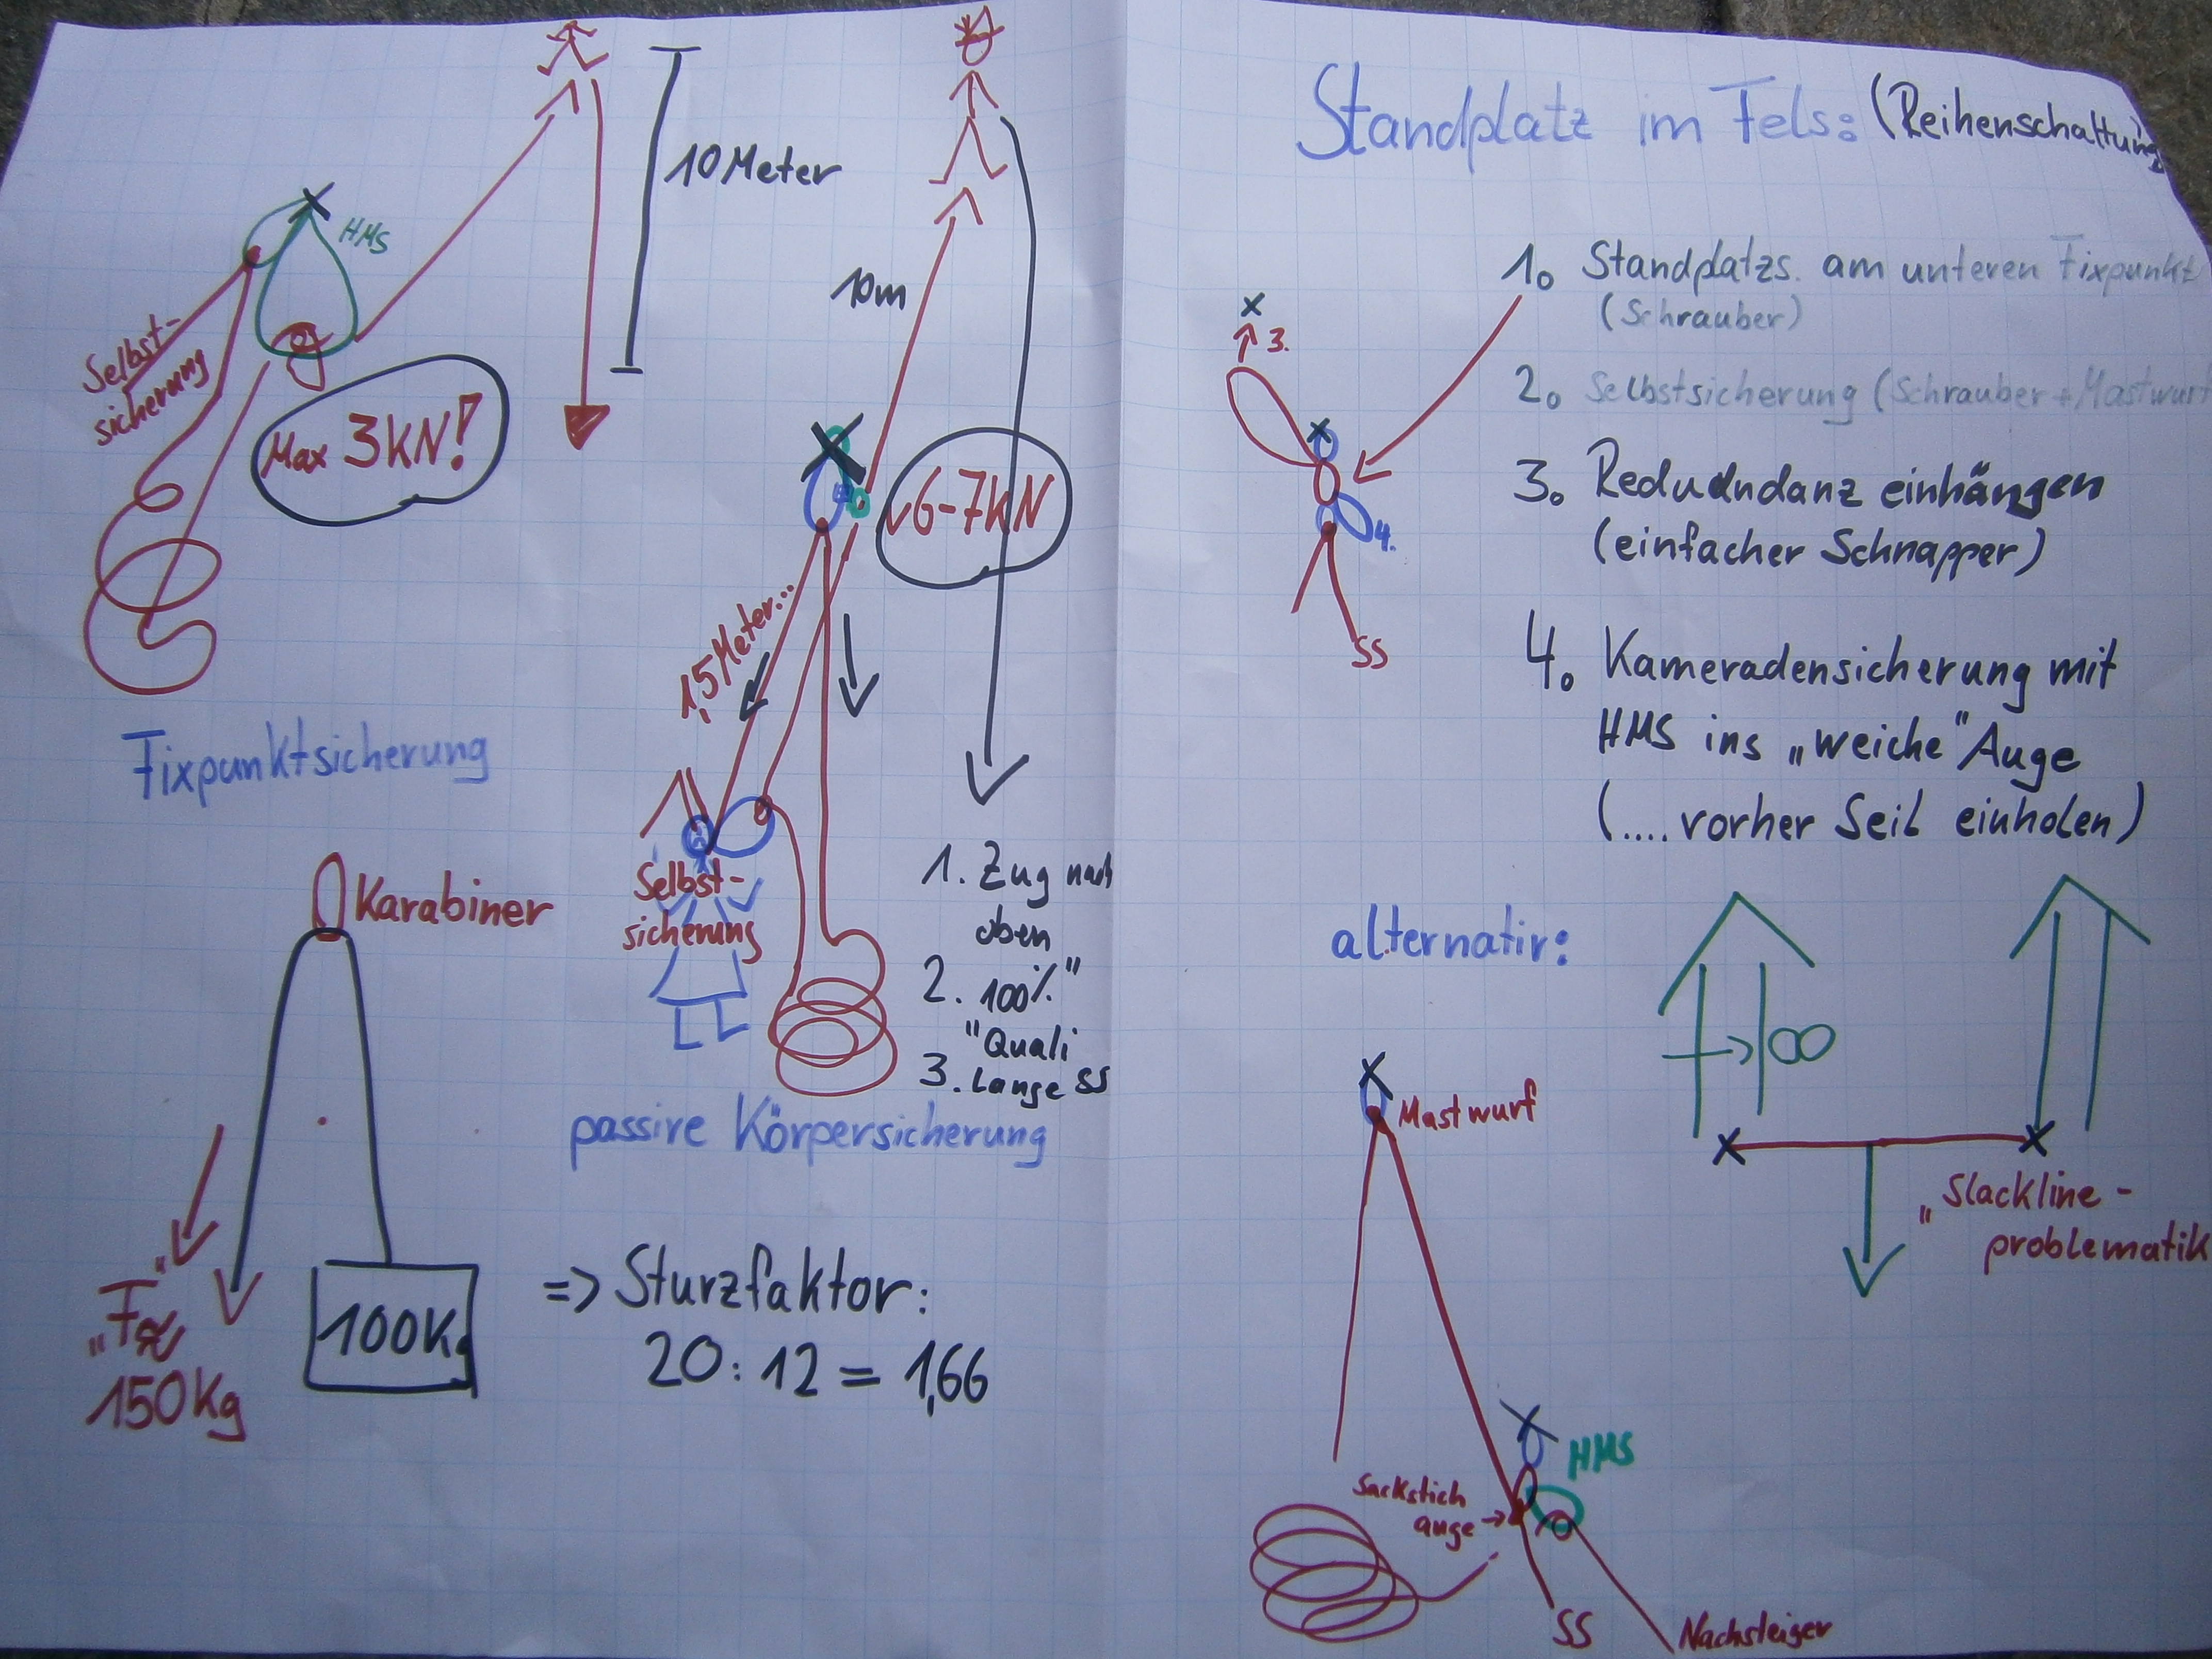 10 Meter
HMS
Selbst-
sicherung
Max 3KN!
Fixpunktsicherung
10m
6-7kN
1,5 Meter...
Selbst-
sicherung
1. Zug nach
oben
2. 100%"
"Quali
3. Lange SS
passive Körpersicherung
Karabiner
100Kg
150Kg
=> Sturzfaktor:
20:12 = 1,66
Standplatz im Fels: (Reihenschaltung)
1. Standplatzs. am unteren Fixpunkt
(Schrauber)
2. Selbstsicherung (Schrauber + Mastwurf
3. Redundanz einhängen
(einfacher Schnapper)
4. Kameradensicherung mit
HMS ins "weiche" Auge
(.... vorher Seil einholen)
3.
4.
SS
alternativ:
∞
"Slackline-
problematik
Mastwurf
HMS
Sackstich
auge →
SS
Nachsteiger